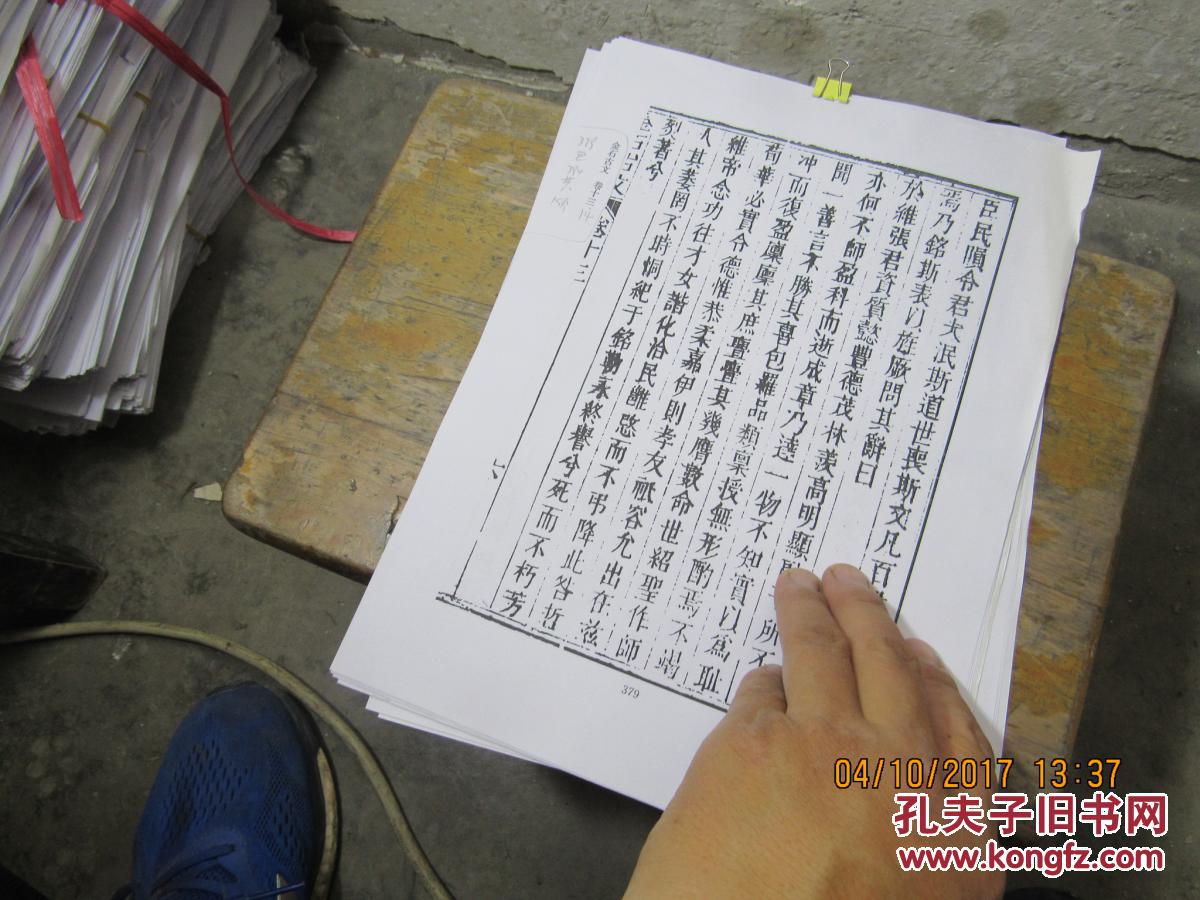 臣民隕令君大泯斯道世喪斯文凡百
焉乃銘斯表以旌厥問其辭曰
於維張君資質懿豐德茂林羨高明顯
亦何不師盈科而逝成章乃達一物不知實以為恥
聞一善言不勝其喜包羅品類稟授無形酌焉不竭
冲而復盈稟稟其庶亹亹其幾膺數命世紹聖作師
苟華必實令德惟恭柔嘉伊則孝友祗容允出在茲
維帝念功往才女諧化洽民雝愍而不弔降此咎哲
人其萎罔不時恫紀于銘勒永終譽兮死而不朽芳
烈著兮
卷十三
金石古文 卷十三
379
04/10/2017 13:37
孔夫子旧书网
www.kongfz.com